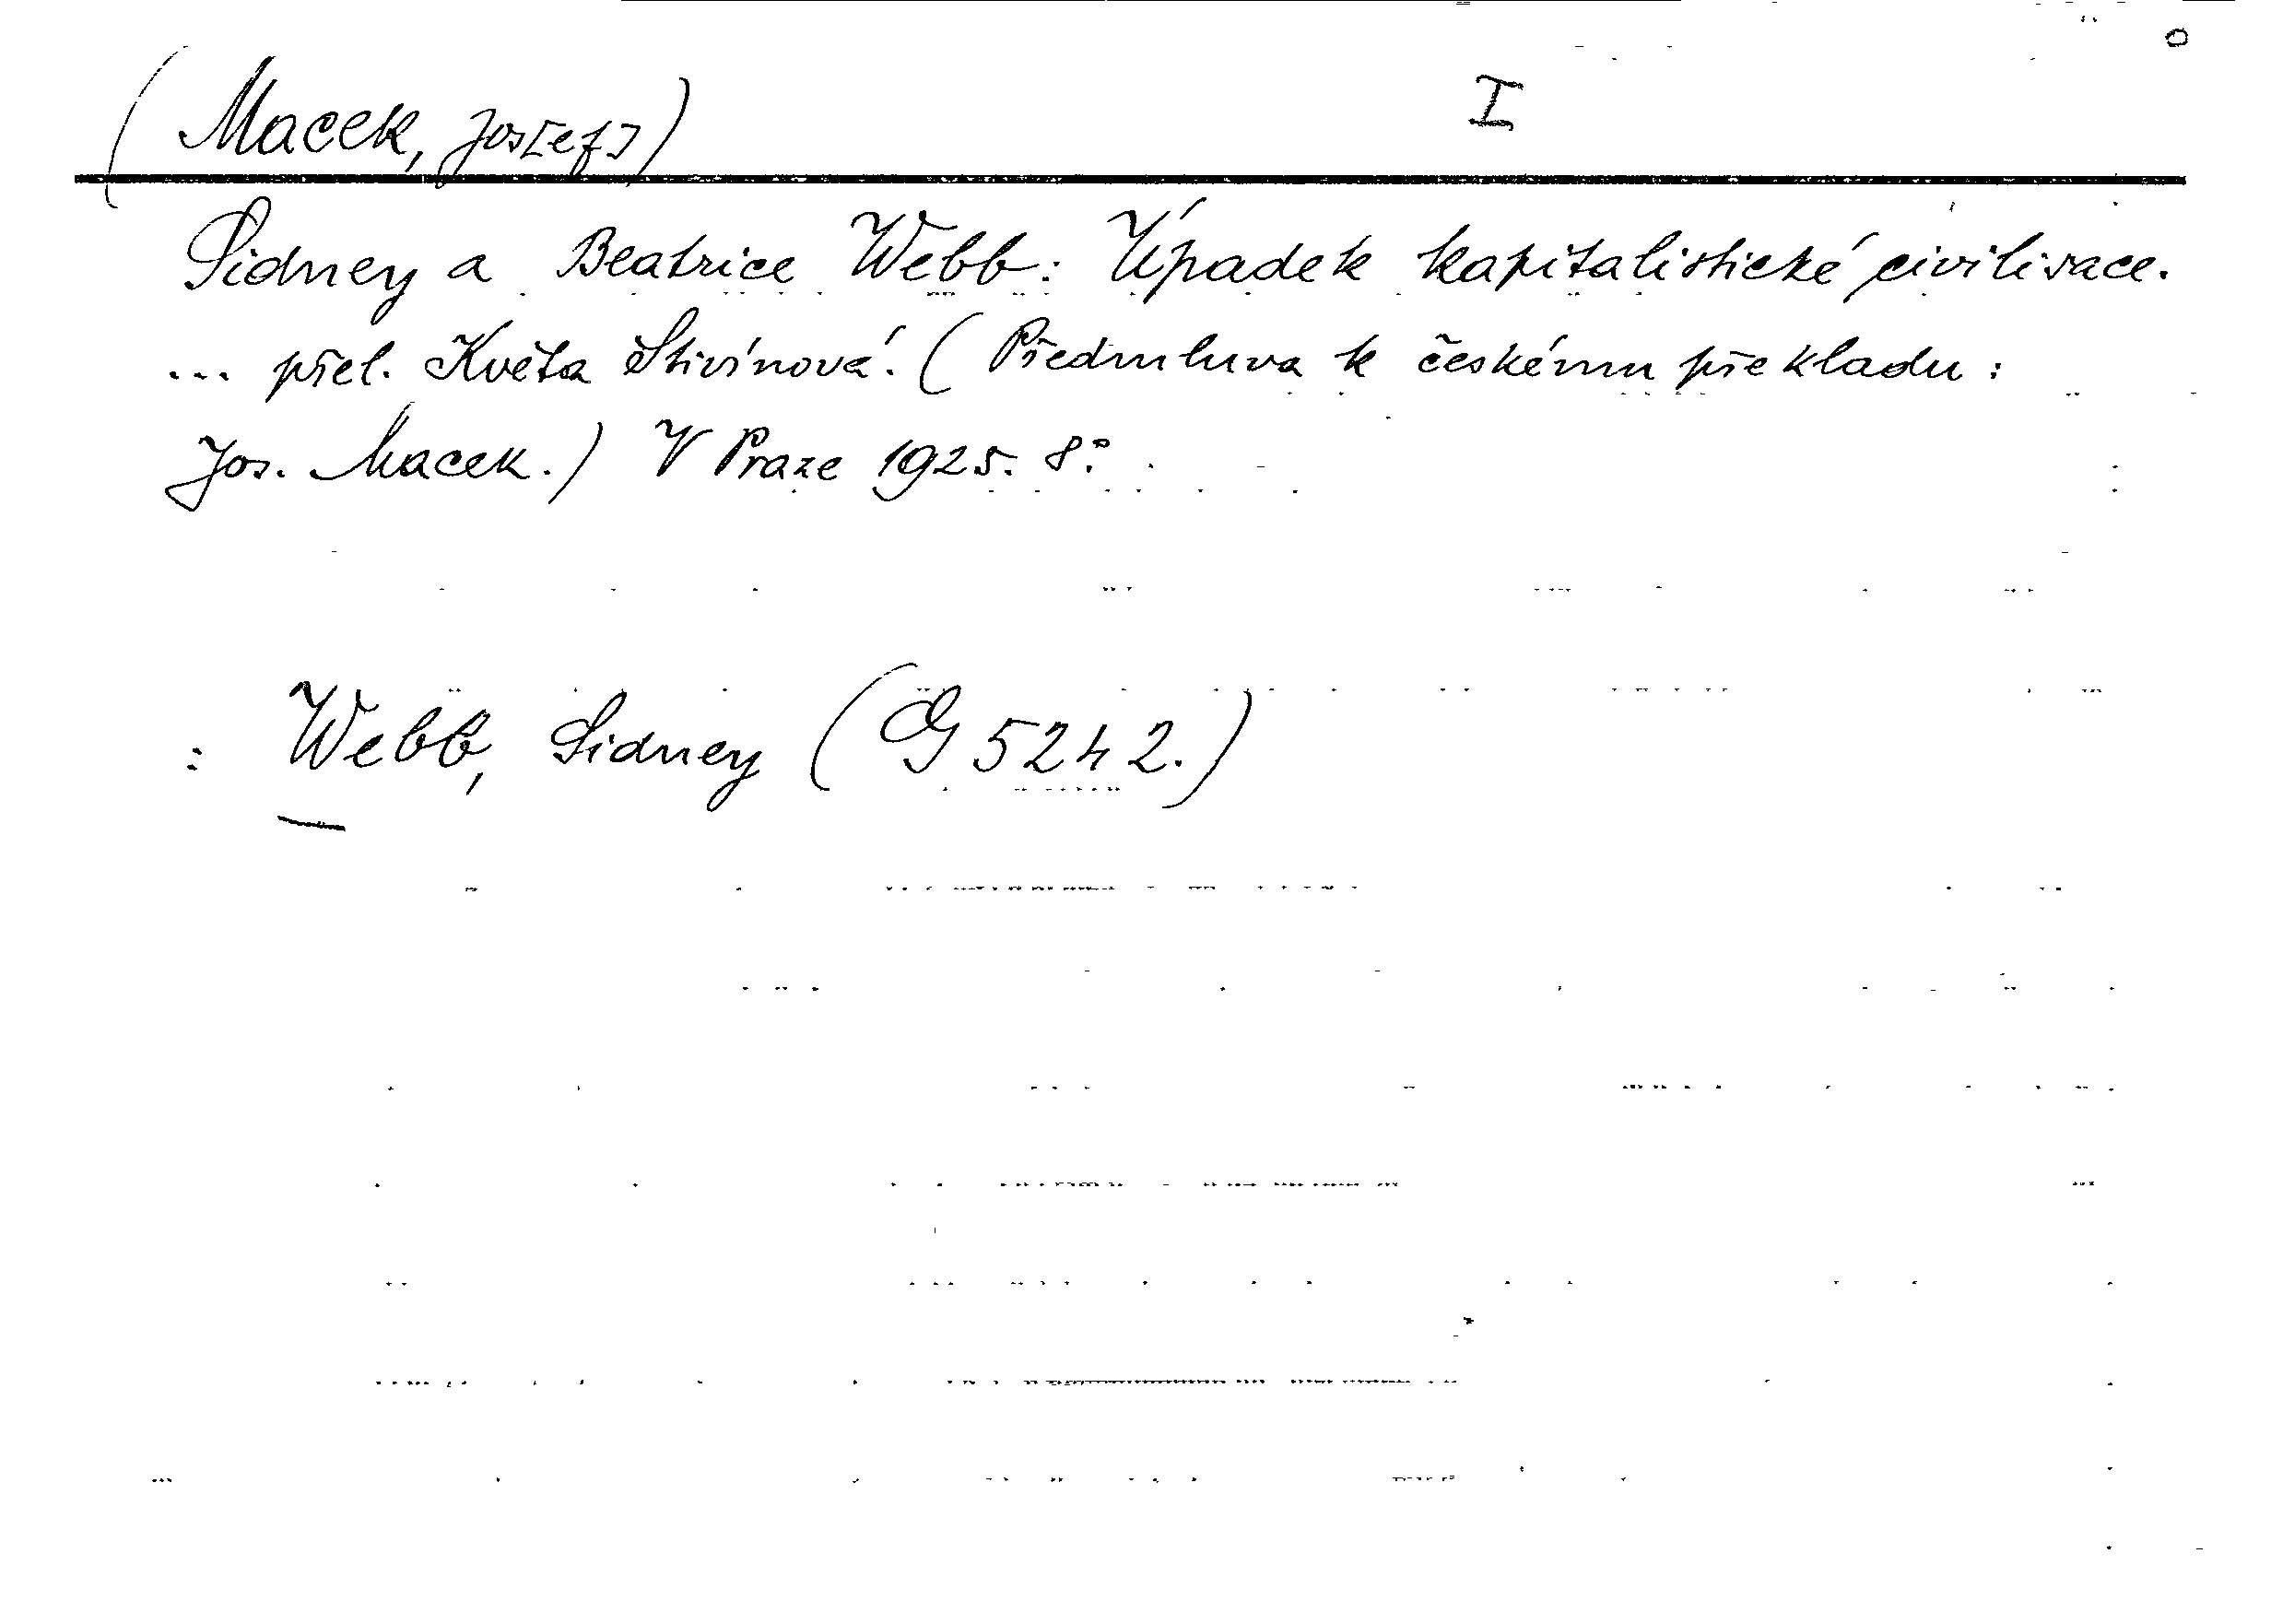 (Macek, Jos[ef]) I
Sidney a Beatrice Webb: Úpadek kapitalistické civilisace.
... přel. Květa Stivínová. (Předmluva k českému překladu:
Jos. Macek.) V Praze 1925. 8°.
: Webb, Sidney (G 5242.)